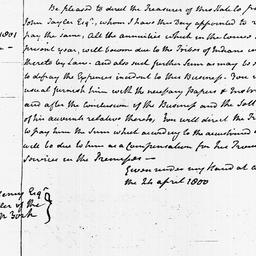 Be pleased to direct the Treasurer of this State to
John Tayler Esqr, whom I have this Day appointed to
pay the same, All the annuities which in the course
present year, will become due to the Tribes of Indians
thereto by Law. And also such further Sum as may be
to defray the Expences incident to this Business. You
usual furnish him with the necessary Papers &
and after the conclusion of the Business and the
of his accounts relative thereto, You will direct the
to pay him the Sum which according to the accustomed
will be due to him as a Compensation for his
Services in the Premises—
Given under my Hand at
the 24 april 1800
Esqr
of the
York